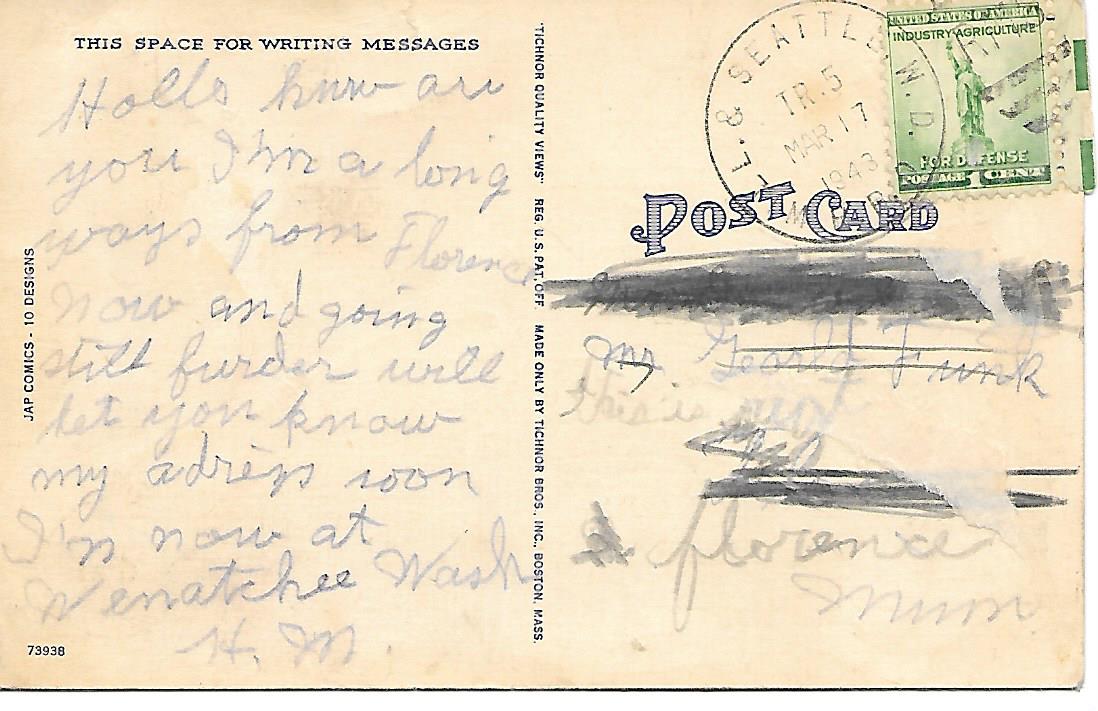 THIS SPACE FOR WRITING MESSAGES
Hollo how are
you I'm a long
ways from Florence
now and going
still furder will
let you know
my adress soon
I'm now at
Wenatchee Wash
H. M.
JAP COMICS - 10 DESIGNS
73938
"TICHNOR QUALITY VIEWS" REG. U.S. PAT. OFF. MADE ONLY BY TICHNOR BROS., INC., BOSTON, MASS.
& SEATTLE
W. D.
TR. 5
MAR 17
1943
UNITED STATES OF AMERICA
INDUSTRY·AGRICULTURE
FOR DEFENSE
POSTAGE 1 CENT
POST CARD
Mr Funk
this is
florence
Minn